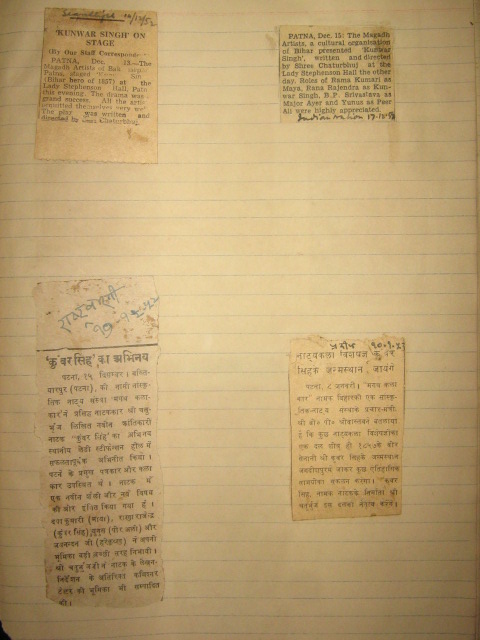 14/12/52
'KUNWAR SINGH' ON
STAGE
(By Our Staff Correspondent
PATNA, Dec. 13.—The
Magadh Artists of
Patna, staged
(Bihar hero of 1857) at the
Lady Stephenson Hall,
this evening. The drama was
grand success. All the
acquitted themselves very
The play was written and
directed by Chaturbhuj.
PATNA, Dec. 15: The Magadh
Artists, a cultural organisation
of Bihar presented 'Kunwar
Singh', written and directed
by Shree Chaturbhuj at the
Lady Stephenson Hall the other
day. Roles of Rama Kumari as
Maya, Rana Rajendra as Kun-
war Singh, B.P. Srivaslava as
Major Ayer and Yunus as Peer
Ali were highly appreciated.
Indian Nation 17-12-52
'कुंवर सिंह' का अभिनय
पटना, १५ दिसम्बर।
(पटना), की नामी सांस्कृ-
तिक नाट्य संस्था 'मगध कला-
कार' ने प्रसिद्ध नाटककार श्री चतु-
र्भुज लिखित नवीन क्रांतिकारी
नाटक "कुंवर सिंह" का अभिनय
स्थानीय लेडी स्टीफेन्सन हॉल में
सफलतापूर्वक अभिनीत किया।
पटने के प्रमुख पत्रकार और कला
कार उपस्थित थे। नाटक में
एक नवीन शैली और नव विषय
की ओर इंगित किया गया है।
कुमारी (माया), राणा राजेन्द्र
(कुंवर सिंह), युनुस (पीर अली) और
जी ने अपनी
भूमिका बड़ी अच्छी तरह निभायी।
श्री चतुर्भुज जी ने नाटक के लेखन-
निर्देशन के अतिरिक्त कमिश्नर
टेलर की भूमिका भी सम्पादित
की।
प्रदीप १०.१.५३
नाट्यकला विशेषज्ञ कुंवर
सिंहके जन्मस्थान जायंगे
पटना, ८ जनवरी। "मगध कला
कार" नामक बिहारकी एक सांस्कृ-
तिक-नाट्य संस्थाके प्रचार-मंत्री
श्री बी० पी० श्रीवास्तवने बतलाया
है कि कुछ नाट्यकला विशेषज्ञोंका
एक दल शीघ्र ही १८५७के वीर
सेनानी श्री कुंवर सिंहके जन्मस्थान
जगदीशपुरमें जाकर कुछ ऐतिहासिक
सामग्रीका संकलन करेगा। "कुंवर
सिंह, नामक नाटकके निर्माता श्री
चतुर्भुज उस दलका नेतृत्व करेंगे।